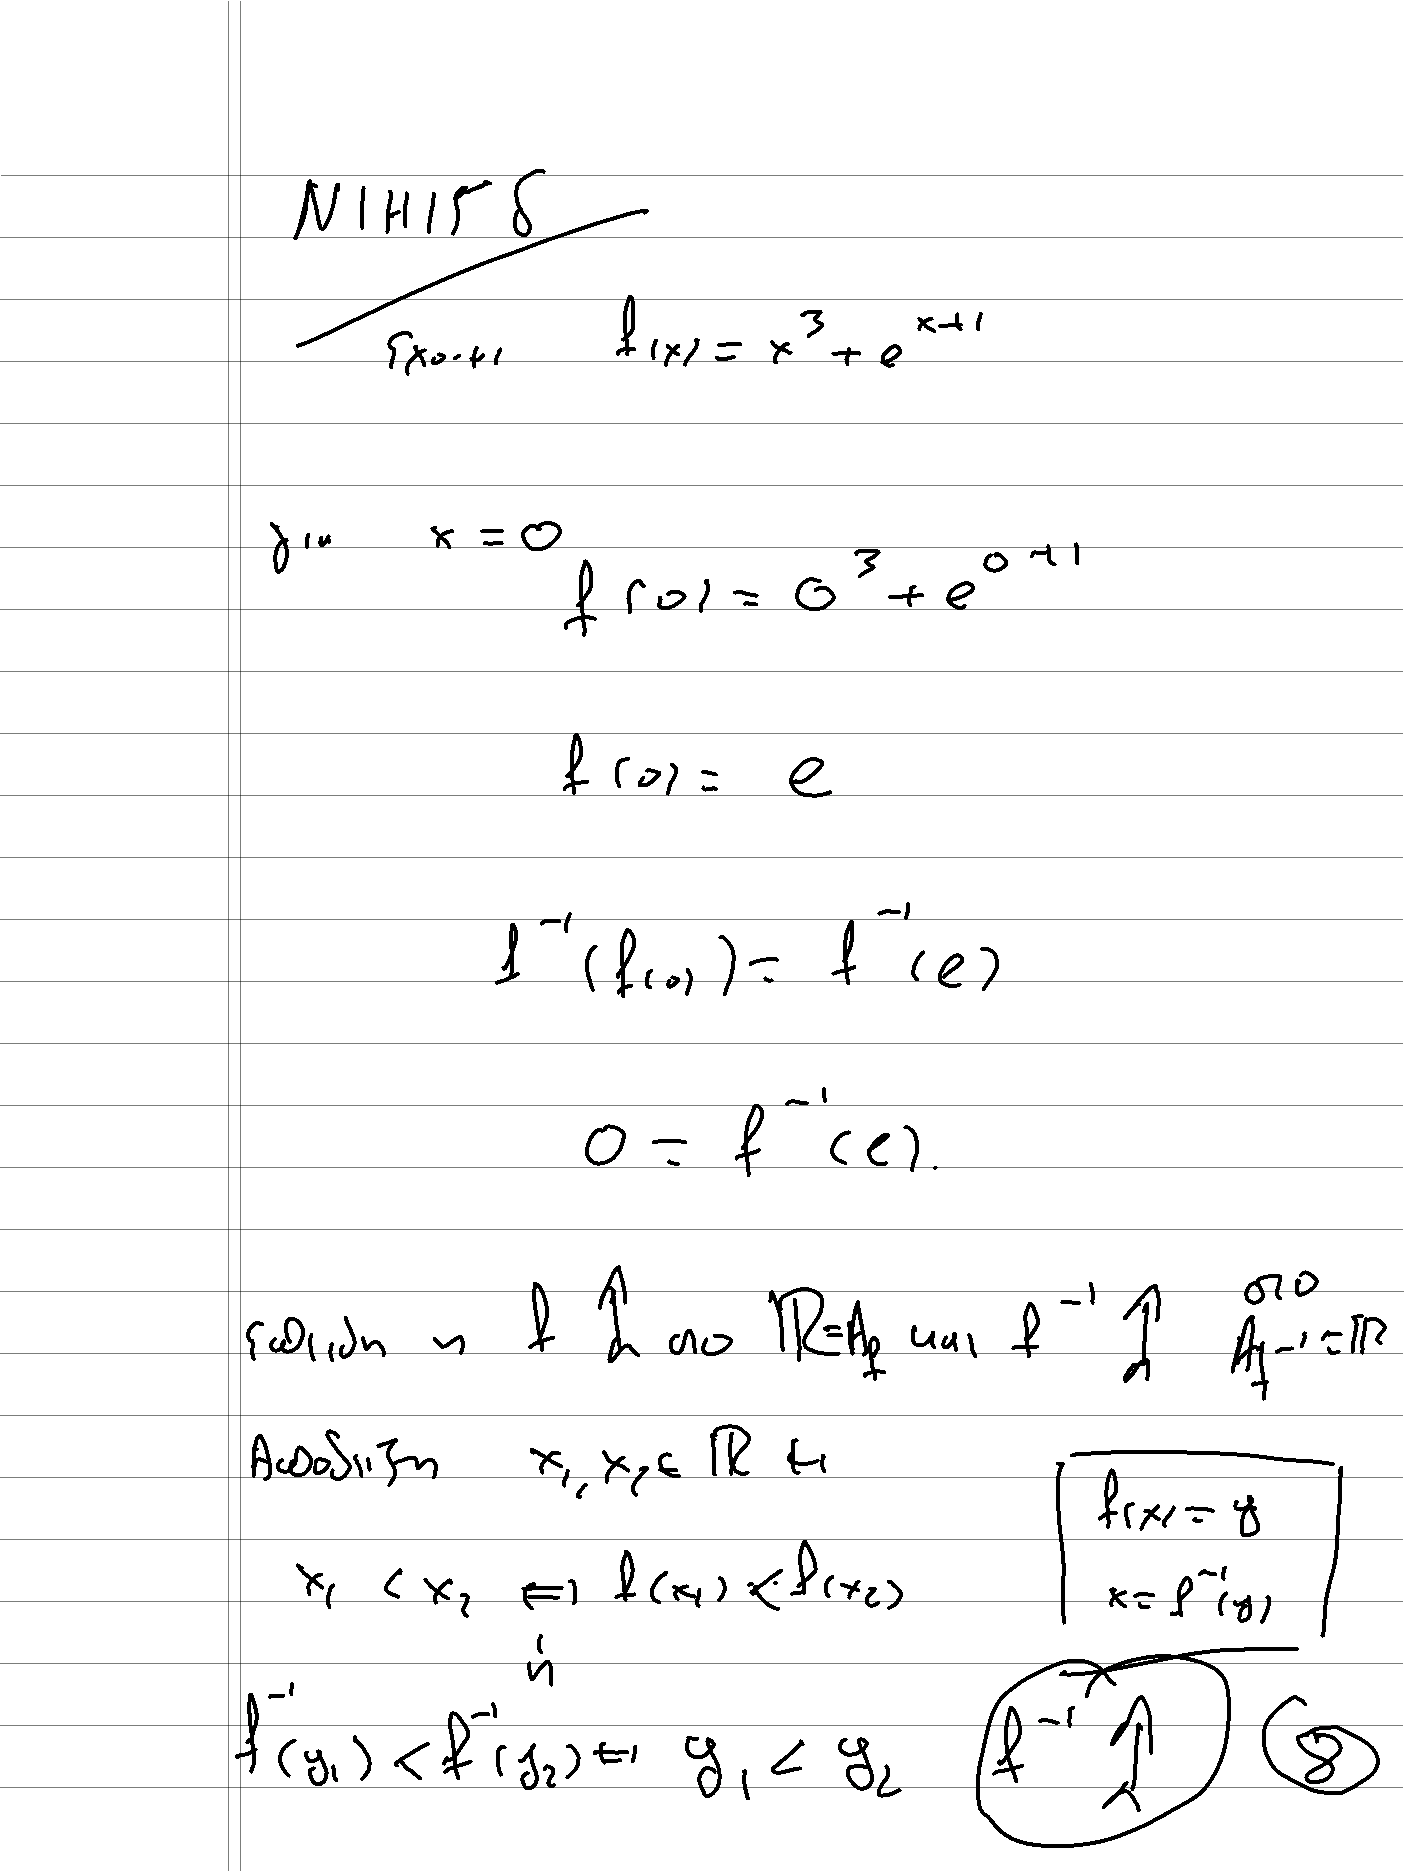 N1H15 δ
έχουμε f(x) = x³ + e^(x+1)
για x = 0
f(0) = 0³ + e^(0+1)
f(0) = e
f⁻¹(f(0)) = f⁻¹(e)
0 = f⁻¹(e).
επειδή η f ↑ στο ℝ=A_f και f⁻¹ ↑ στο A_f⁻¹=ℝ
Απόδειξη x₁, x₂ ∈ ℝ με
f(x) = y
x = f⁻¹(y)
x₁ < x₂ ⇔ f(x₁) < f(x₂)
ή
f⁻¹(y₁) < f⁻¹(y₂) ⇔ y₁ < y₂ f⁻¹ ↑ 8